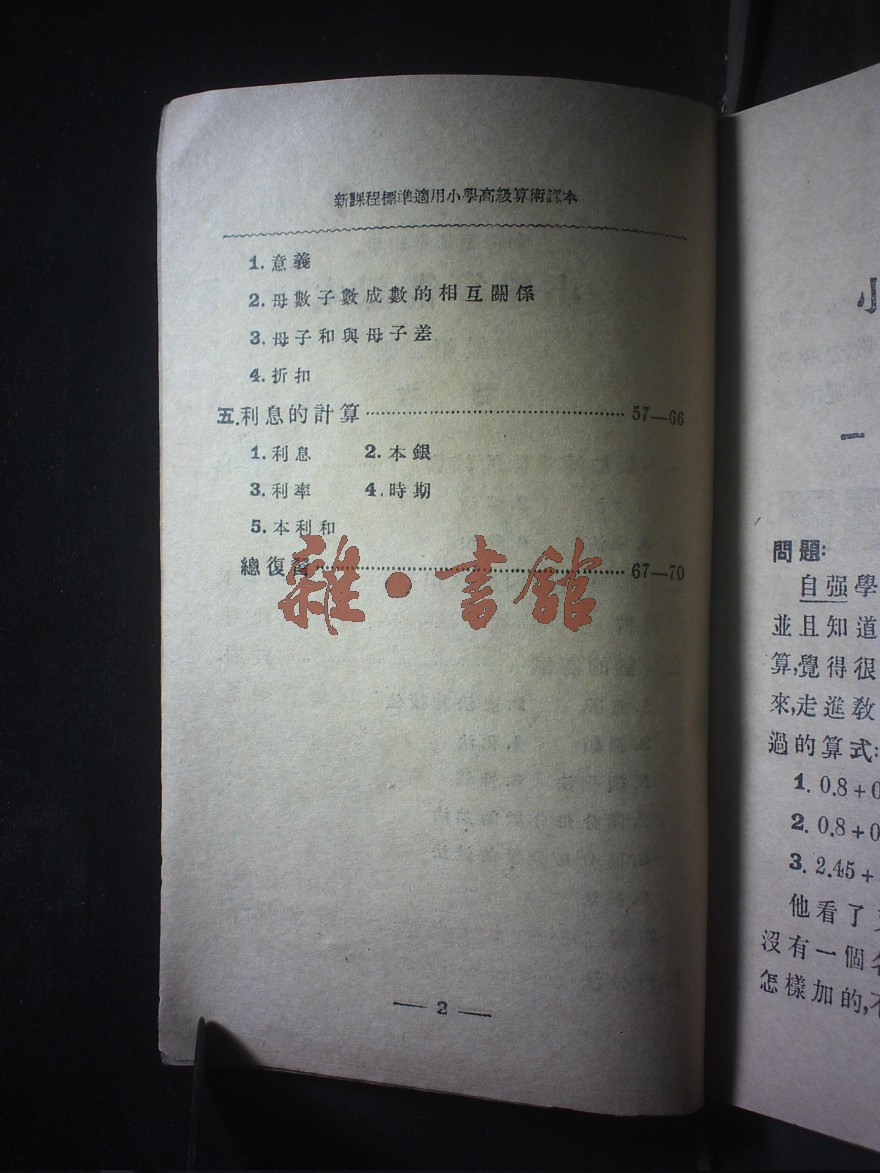 新課程標準適用小學高級算術課本
1. 意義
2. 母數子數成數的相互關係
3. 母子和與母子差
4. 折扣
五. 利息的計算 57—66
1. 利息 2. 本銀
3. 利率 4. 時期
5. 本利和
總復習 67—70
雜·書館
— 2 —
小
一
問題:
自强學
並且知道
算,覺得很
來,走進敎
過的算式:
1. 0.8+0
2. 0.8+0
3. 2.45+
他看了
沒有一個
怎樣加的,